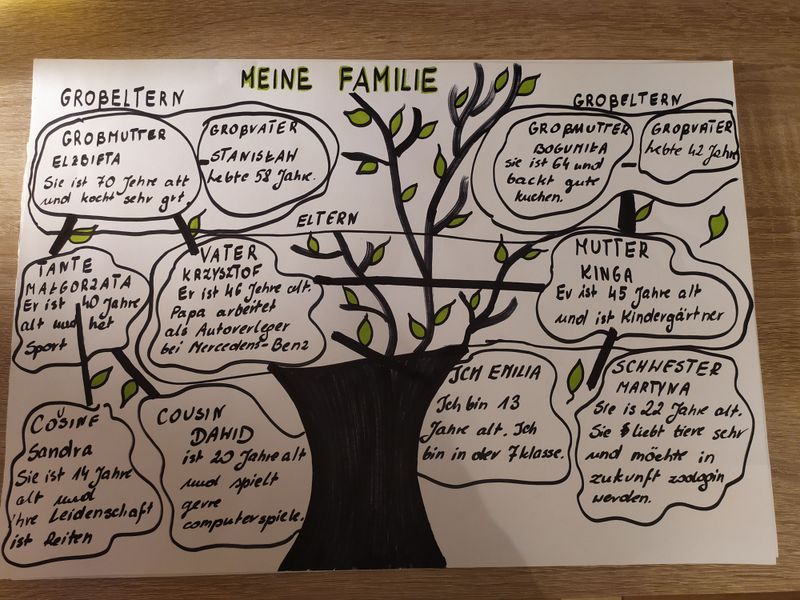 MEINE FAMILIE
GROßELTERN
GROßMUTTER
ELŻBIETA
Sie ist 70 Jehre alt
und kocht sehr gut.
GROßVATER
STANISŁAW
lebte 58 Jahre.
GROßELTERN
GROßMUTTER
BOGUMIŁA
sie ist 64 und
backt gute
kuchen.
GROßVATER
lebte 42 Jahre
ELTERN
TANTE
MAŁGORZATA
Er ist 40 Jahre
alt und
Sport
VATER
KRZYSZTOF
Er ist 46 Jehre alt.
Papa arbeitet
als Autoverleger
bei Mercedens-Benz
MUTTER
KINGA
Er ist 45 Jahre alt
und ist Kindergärtner
COSINE
Sandra
Sie ist 14 Jahre
alt und
ihre Leidenschaft
ist Reiten
COUSIN
DAWID
ist 20 Jahre alt
und spielt
gerre
computerspiele.
ICH EMILIA
Ich bin 13
Jahre alt. Ich
bin in der 7 klasse.
SCHWESTER
MARTYNA
Sie is 22 Jahre alt.
Sie liebt tiere sehr
und möchte in
zukunft zoologin
werden.